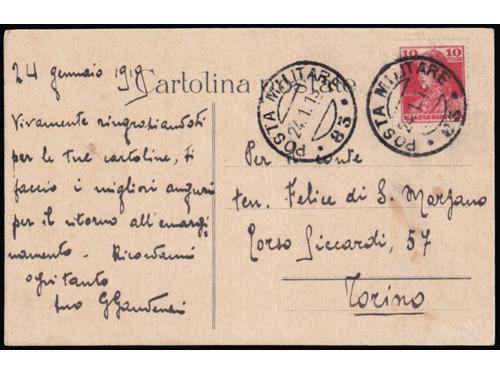 24 gennaio 1919
Cartolina
Vivamente ringraziandoti
per le tue cartoline, ti
faccio i migliori auguri
per il ritorno all'emargi-
namento. Ricordami
ogni tanto
tuo
POSTA MILITARE
83
24.1.19
10 10
POSTA MILITARE
83
Per il conte
ten. Felice di S. Marzano
Corso Siccardi, 57
Torino